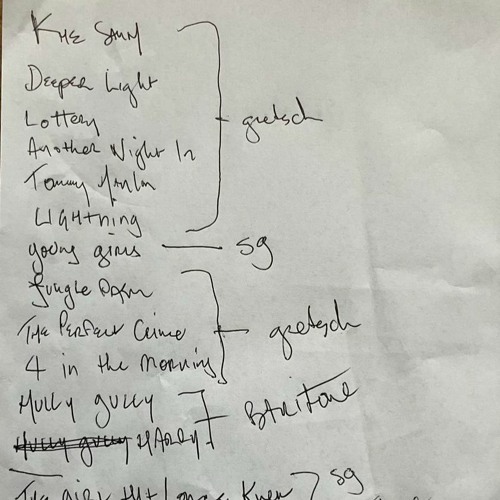 Deeper Light
Lottery
gretsch
Another Night In
Tommy
LIGHTNING
young girls
SG
Jungle
The Perfect Crime
gretsch
4 in the Morning
Hully gully
BARITONE
Hully gully HARDY
The girl that
SG